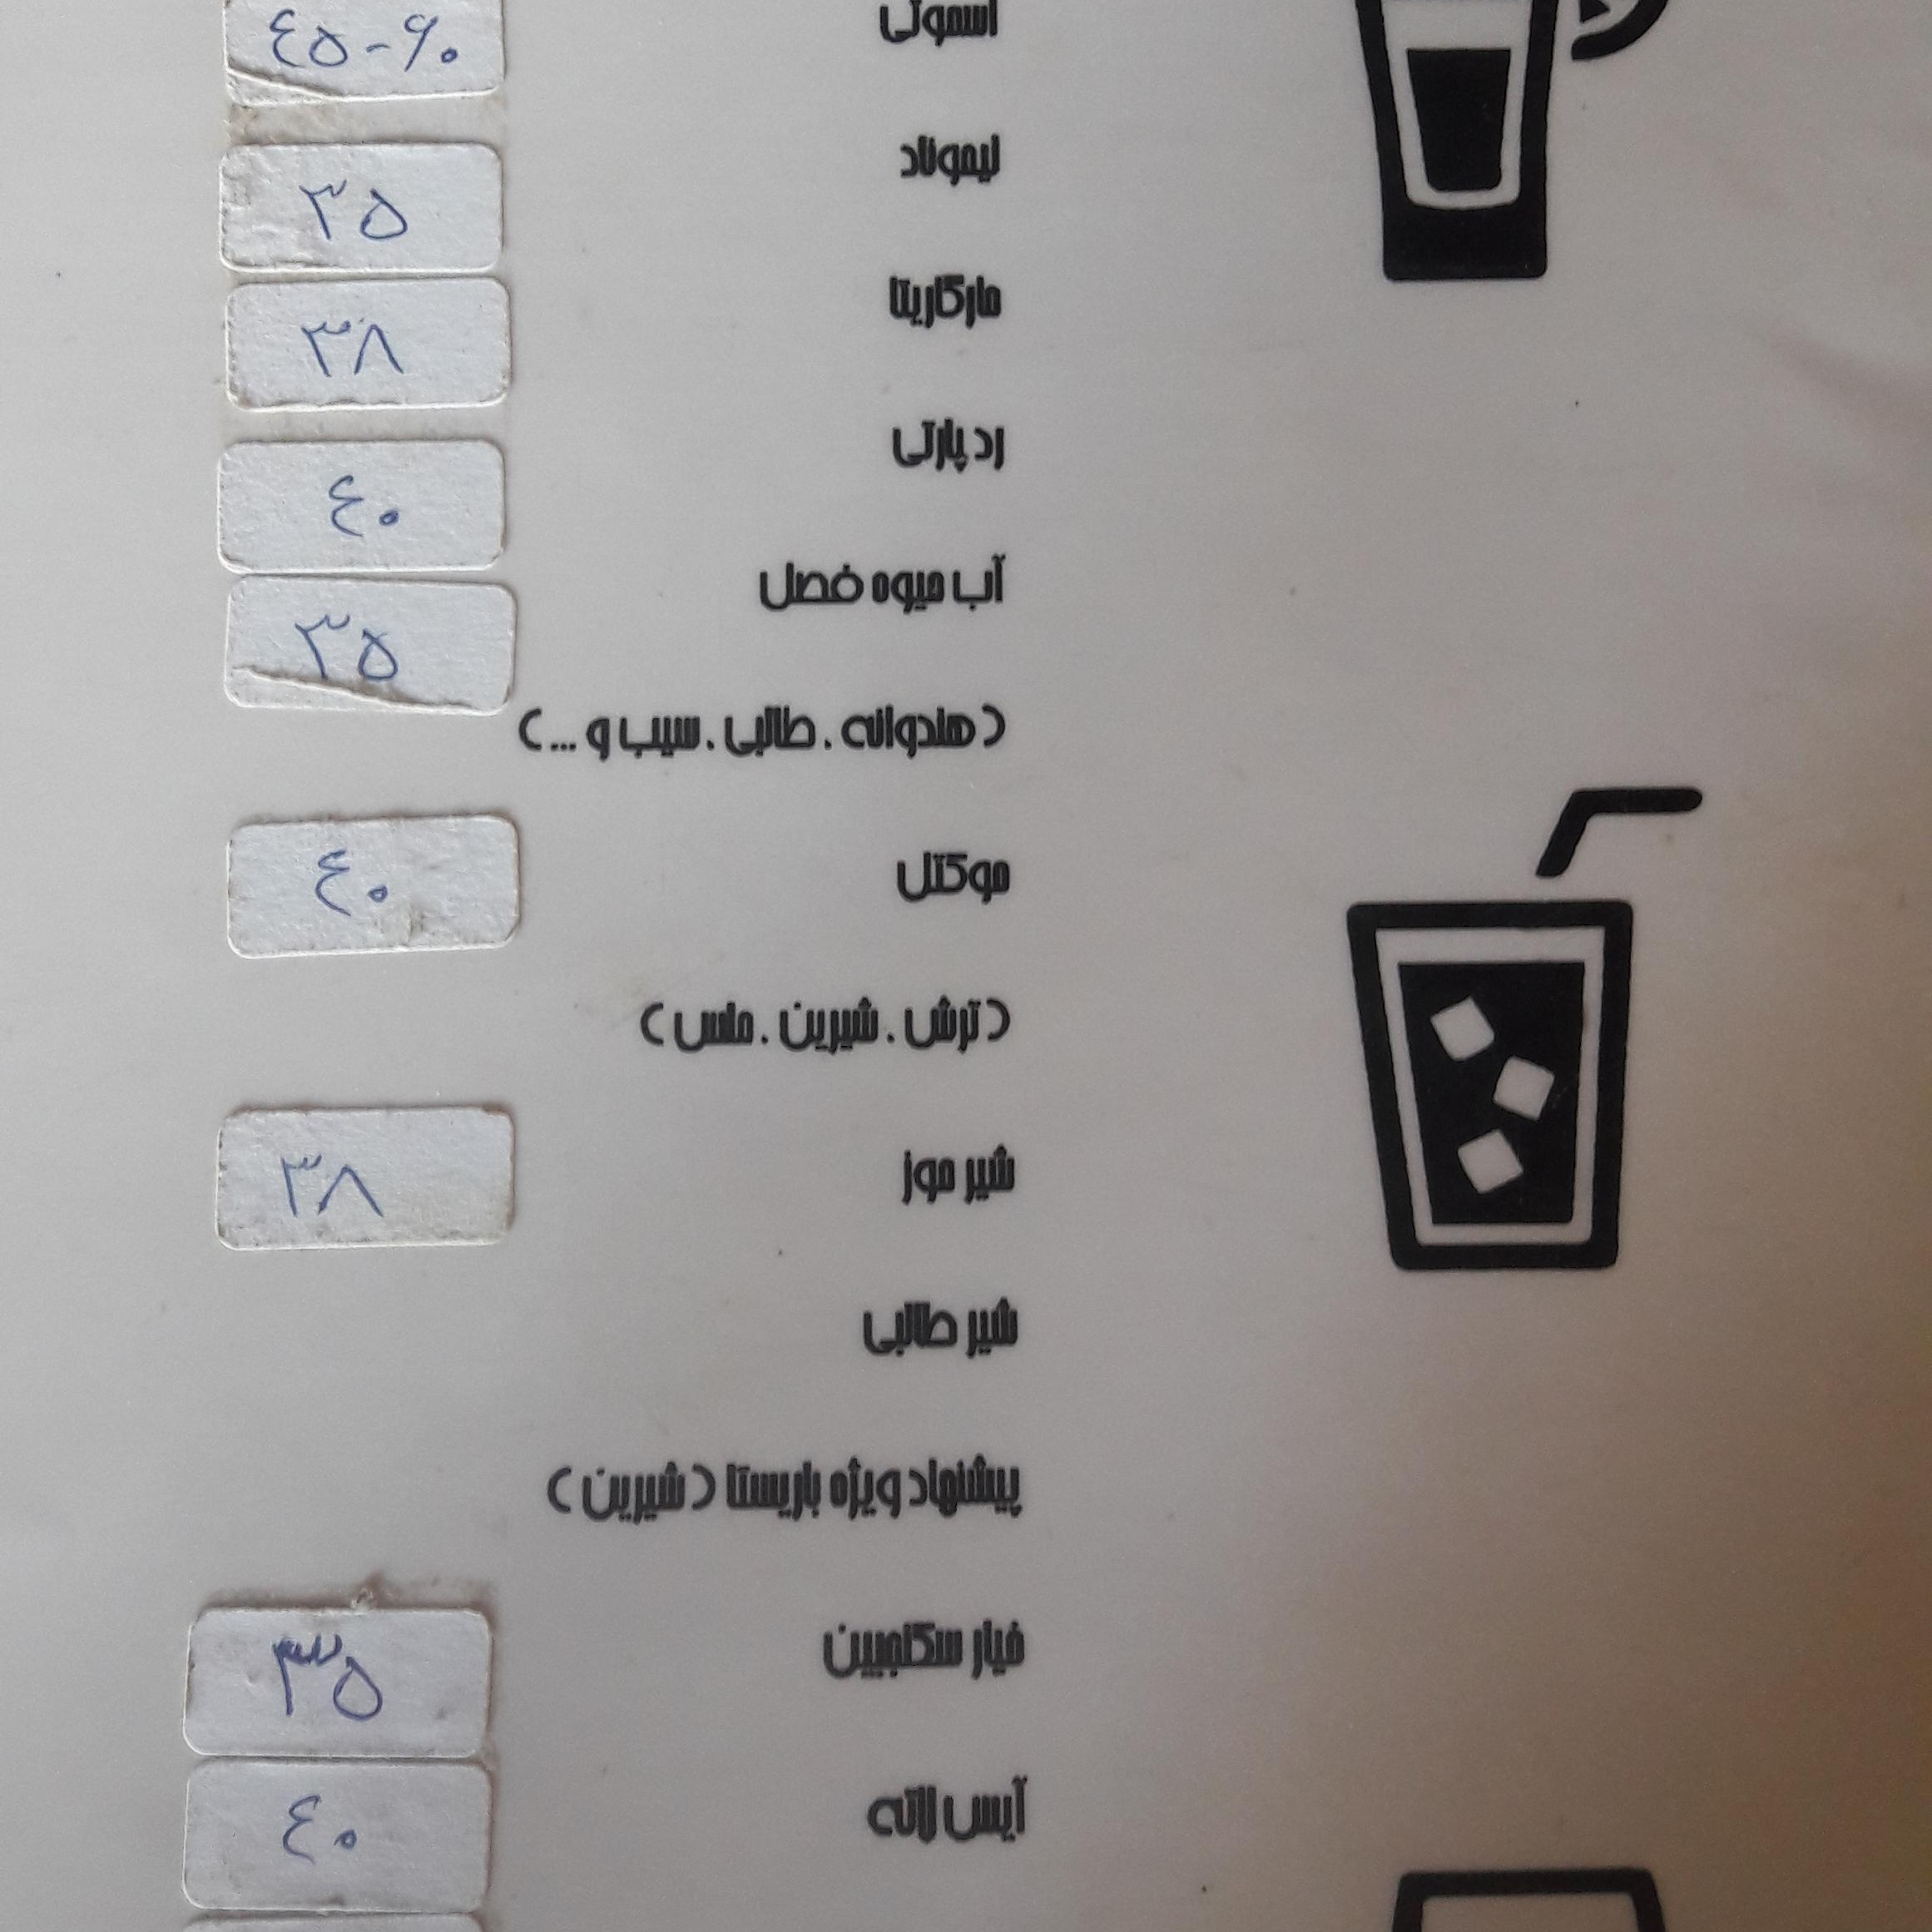 اسموتی ٤۵-۶۰
لیموناد ۳۵
مارگاریتا ۳۸
رد پارتی ٤۰
آب میوه فصل ۳۵
( هندوانه . طالبی . سیب و ... )
موکتل ٤۰
( ترش . شیرین . ملس )
شیر موز ۳۸
شیر طالبی
پیشنهاد ویژه باریستا ( شیرین )
خیار سکنجبین ۳۵
آیس لاته ٤۰